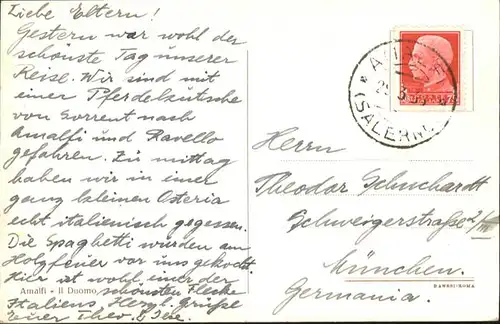 Liebe Eltern!
Gestern war wohl der
schönste Tag unserer
Reise. Wir sind mit
einer Pferdekutsche
von Sorrent nach
Amalfi und Ravello
gefahren. Zu mittag
haben wir in einer
ganz kleinen Osteria
echt italienisch gegessen.
Die Spaghetti wurden am
Holzfeuer vor uns gekocht.
Hier ist wohl einer der
schönsten Flecke
Italiens. Herzl. Grüße
Euer Theo
Amalfi - Il Duomo
(SALERNO)
Herrn
Theodor Schuchardt
Schweigerstraße
München.
Germania.